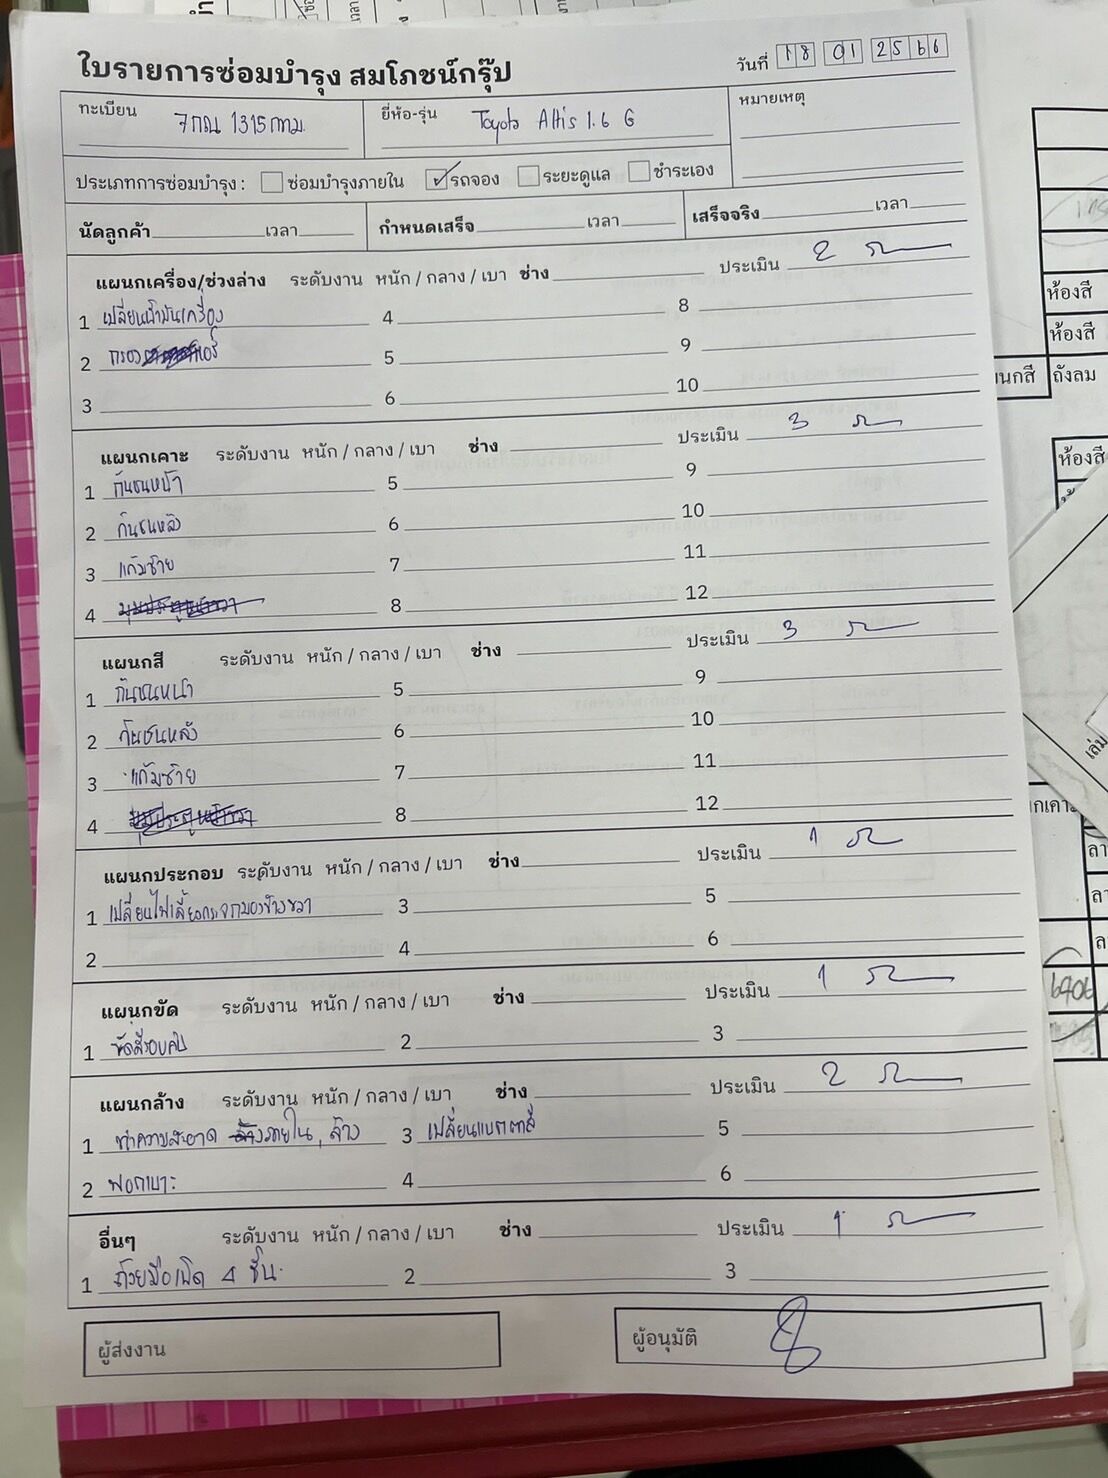 ใบรายการซ่อมบำรุง สมโภชน์กรุ๊ป
วันที่ 18 01 2566
ทะเบียน 7กณ 1315 กทม.
ยี่ห้อ-รุ่น Toyota Altis 1.6 G
หมายเหตุ
ประเภทการซ่อมบำรุง : ซ่อมบำรุงภายใน ✓ รถจอง ระยะดูแล ชำระเอง
นัดลูกค้า เวลา กำหนดเสร็จ เวลา เสร็จจริง เวลา
แผนกเครื่อง/ช่วงล่าง ระดับงาน หนัก / กลาง / เบา ช่าง ประเมิน 2
1 เปลี่ยนน้ำมันเครื่อง 4 8
2 กรอง แอร์ 5 9
3 6 10
แผนกเคาะ ระดับงาน หนัก / กลาง / เบา ช่าง ประเมิน 3
1 กันชนหน้า 5 9
2 กันชนหลัง 6 10
3 แก้มซ้าย 7 11
4 8 12
แผนกสี ระดับงาน หนัก / กลาง / เบา ช่าง ประเมิน 3
1 กันชนหน้า 5 9
2 กันชนหลัง 6 10
3 แก้มซ้าย 7 11
4 8 12
แผนกประกอบ ระดับงาน หนัก / กลาง / เบา ช่าง ประเมิน 1
1 เปลี่ยนไฟเลี้ยวกระจกมองข้างขวา 3 5
2 4 6
แผนกขัด ระดับงาน หนัก / กลาง / เบา ช่าง ประเมิน 1
1 ขัดสีรอบคัน 2 3
แผนกล้าง ระดับงาน หนัก / กลาง / เบา ช่าง ประเมิน 2
1 ทำความสะอาด ภายใน, ล้าง 3 เปลี่ยนแบตตารี่ 5
2 ฟอกเบาะ 4 6
อื่นๆ ระดับงาน หนัก / กลาง / เบา ช่าง ประเมิน 1
1 ถ้วยมือเปิด 4 ชิ้น 2 3
ผู้ส่งงาน
ผู้อนุมัติ
ห้องสี
ห้องสี
ถังลม
ห้องสี